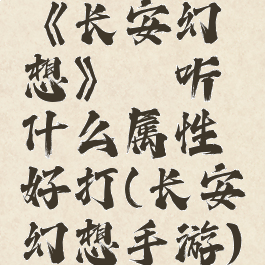 《长安幻
想》 听
什么属性
好打(长安
幻想手游)